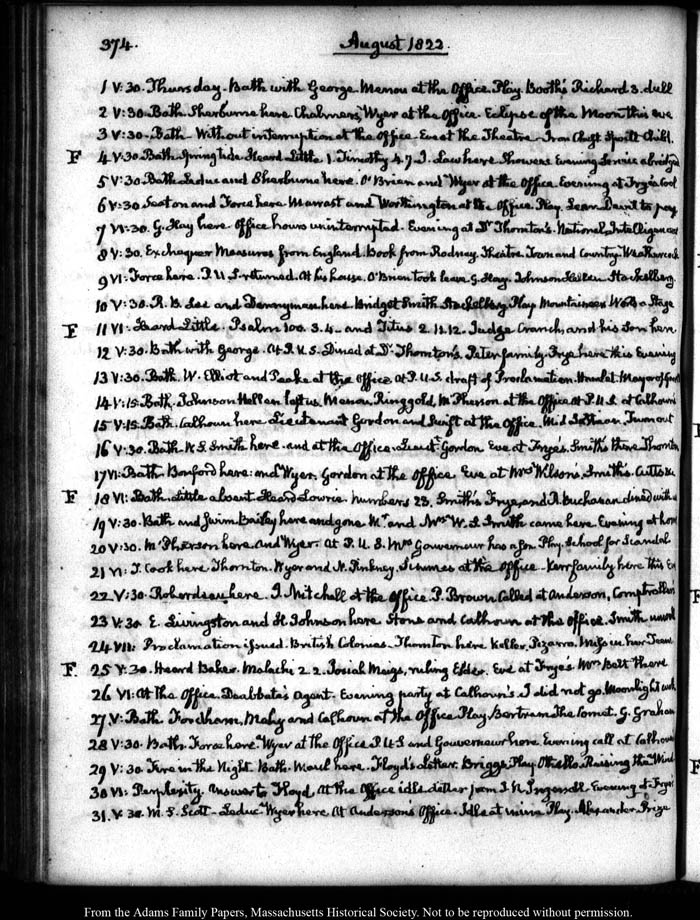 374.
August 1822.
1 V:30. Thursday. Bath with George. Menou at the Office. Play. Booth's Richard 3. dull
2 V:30. Bath Sherburne here Chalmers, Wyer at the Office. Eclipse of the Moon this eve
3 V:30. Bath. Without interruption at the Office. Eve at the Theatre. Iron Chest Spoil'd Child.
F 4 V:30 Bath. Spring tide. Heard Little 1. Timothy 4. 7. J. Law here. Showers Evening Service abridged
5 V:30. Bath. Leduc and Sherburne here. O'Brian and Wyer at the Office. Evening at Frye's Cool
6 V:30 Seaton and Force here. Marrast and Worthington at the Office. Play. Lean
7 VI:30. G. Hay here. Office hours uninterrupted. Evening at Dr. Thornton's. National Intelligencer
8 V:30. Exchequer Measures from England. Book from Rodney. Theatre. Town and Country. Weathercock
9 VI. Force here. P.U.S. returned. At his house. O'Brien took leave. G. Hay. Johnson Hellen Stackelberg.
10 V:30. R. B. Lee and here. Bridget Smith Stackelberg Play Mountaineers Wood a Stage
F 11 VI. Heard Little. Psalm 100. 3. 4. and Titus 2. 11. 12. Judge Cranch, and his Son here.
12 V:30. Bath with George. At P.U.S. Dined at Dr. Thornton's. Peter family. Frye here this Evening
13 V:30. Bath. W. Elliot and Peake at the Office at P.U.S. draft of Proclamation. Hamlet. Mayor of
14 V:15. Bath. Johnson Hellen left us. Menou, Ringgold. McPherson at the Office at P.U.S. at Calhoun's
15 V:15. Bath. Calhoun here Lieutenant Gordon and Swift at the Office. Turn out
16 V:30. Bath. W. S. Smith here. and at the Office. Lieutt. Gordon Eve at Frye's. Smiths there Thornton
17 VI. Bath. Bonford here. and Wyer. Gordon at the Office Eve at Mrs. Wilson's. Smith's. Cutts &c
F 18 VI. Bath. Little absent Heard Lowrie. Numbers 23. Smith's Frye, and A. Buchanan dined with us
19 V:30. Bath and Swim. Bailey here and gone. Mr. and Mrs. W. S. Smith came here. Evening at home
20 V:30. McPherson here and Wyer. At P.U.S. Mrs. Gouverneur has a Son Play. School for Scandal
21 VI. T. Cook here Thornton. Wyer and N. Pinkney. Sommes at the Office. Kerr family here this Eve
22 V:30. Robardeau here. J. Mitchell at the Office. P. Brown Called at Anderson, Comptroller's
23 V:30 E. Livingston and H. Johnson here. Stone and Calhoun at the Office. Smith unwell
24 VII: Proclamation issued. British Colonies. Thornton here Keller. Pizarro. Miss in her Teens
F 25 V:30. Heard Baker. Malachi 2. 2. Josiah Meigs, ruling Elder. Eve at Frye's Mrs. Bolt there
26 VI: At the Office. Deabbate's agent. Evening party at Calhoun's. I did not go. Moonlight walk
27 V: Bath Fordham, Many and Calhoun at the Office Play Bertram The Comet. G. Graham
28 V:30. Bath. Force here. Wyer at the Office P.U.S and Gouverneur here. Evening call at Calhoun's
29 V:30. Fire in the Night. Bath. Maul here. Floyd's Letter. Briggs. Play. Othello. Raising the Wind
30 VI: Perplexity. Answer to Floyd. At the Office idle. Letter from J. R. Ingersoll. Evening at Frye's
31. V:30. M. S. Scott. Leduc. Wyer here. At Anderson's Office. Idle at mine Play. Alexander. Prize
From the Adams Family Papers, Massachusetts Historical Society. Not to be reproduced without permission.